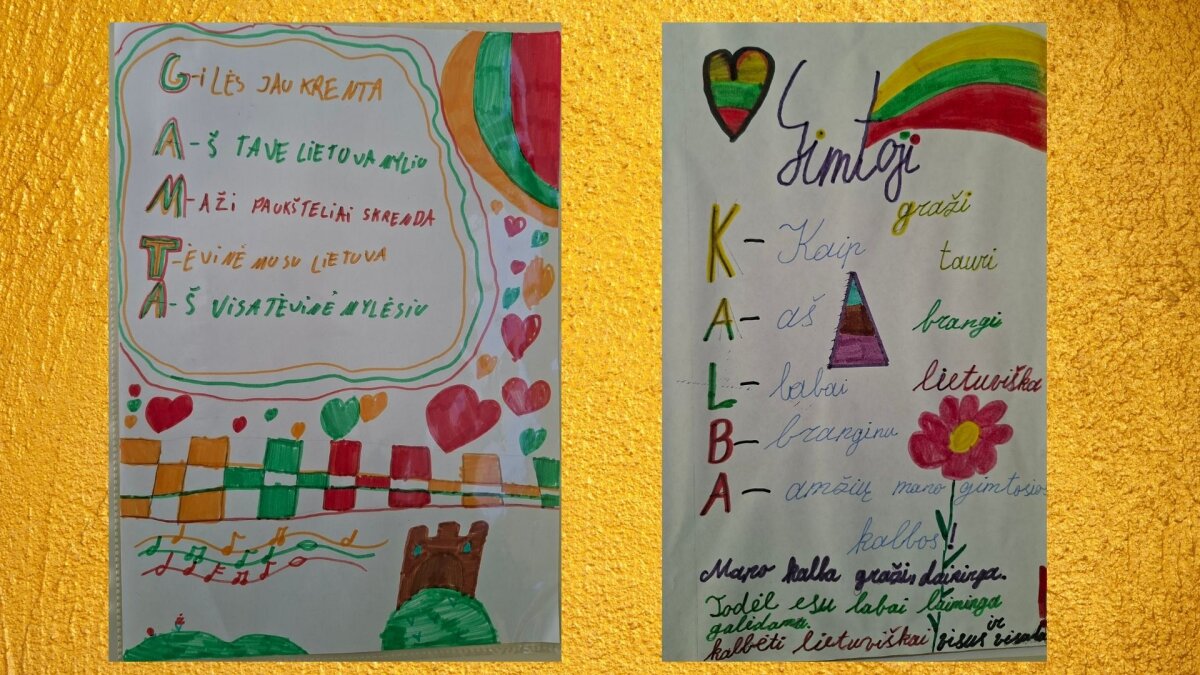 G-ILĖS JAU KRENTA
A-Š TAVE LIETUVA MYLIU
M-AŽI PAUKŠTELIAI SKRENDA
T-ĖVINĖ MUSU LIETUVA
A-Š VISA TĖVINĖ MYLĖSIU
Gimtoji
graži
K- Kaip
tauri
A- aš
brangi
L- labai
lietuviška
B- branginu
A- amžių mano gimtosios
kalbos!
Mano kalba graži, daininga.
Todėl esu labai laiminga
galėdama
kalbėti lietuviškai visus ir visada